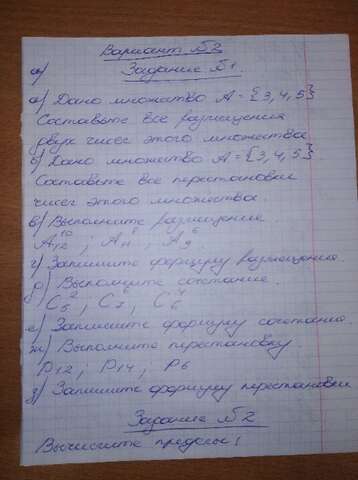 Вариант №2
а) Задание №1.
а) Дано множество А = {3,4,5}
Составьте все размещения
двух чисел этого множества
б) Дано множество А = {3,4,5}
Составьте все перестановки
чисел этого множества.
в) Выполните размещение.
A₁₂¹⁰ ; A₁₁⁸ ; A₉⁶
г) Запишите формулу размещения.
д) Выполните сочетание.
C₅² , C₇ , C₆⁴
е) Запишите формулу сочетания.
ж) Выполните перестановку.
P₁₂ ; P₁₄ ; P₆
з) Запишите формулу перестановки
Задание №2
Вычислите пределы